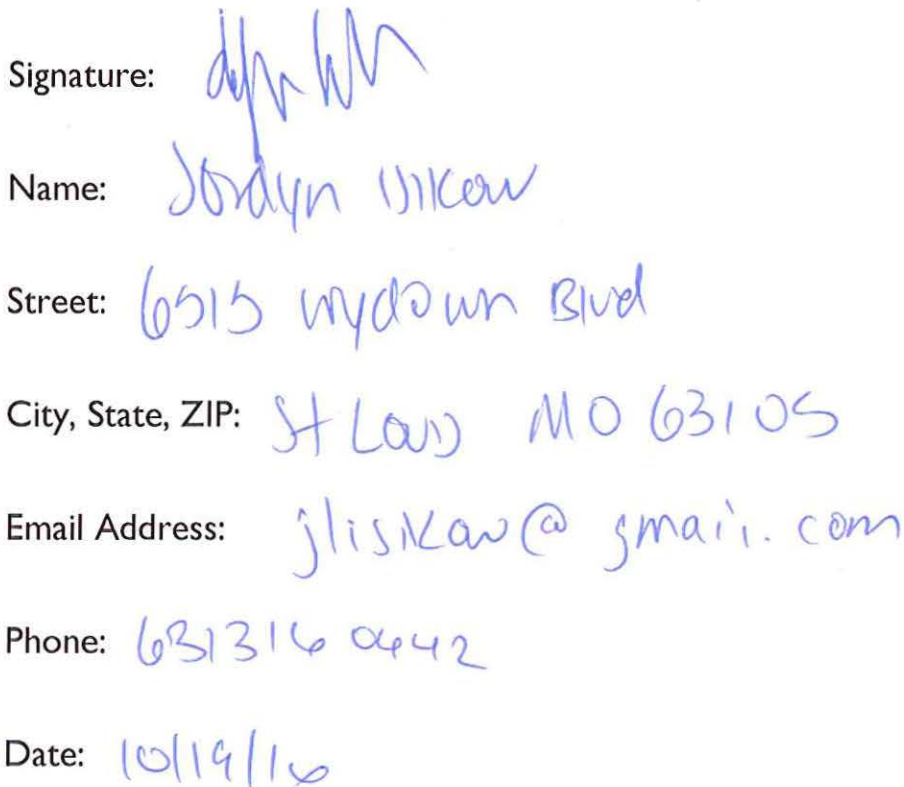 Signature:
Name: Jordyn Isikow
Street: 6515 wydown Blvd
City, State, ZIP: St Louis MO 63105
Email Address: jlisikow@gmail.com
Phone: 631316 0442
Date: 10/19/16